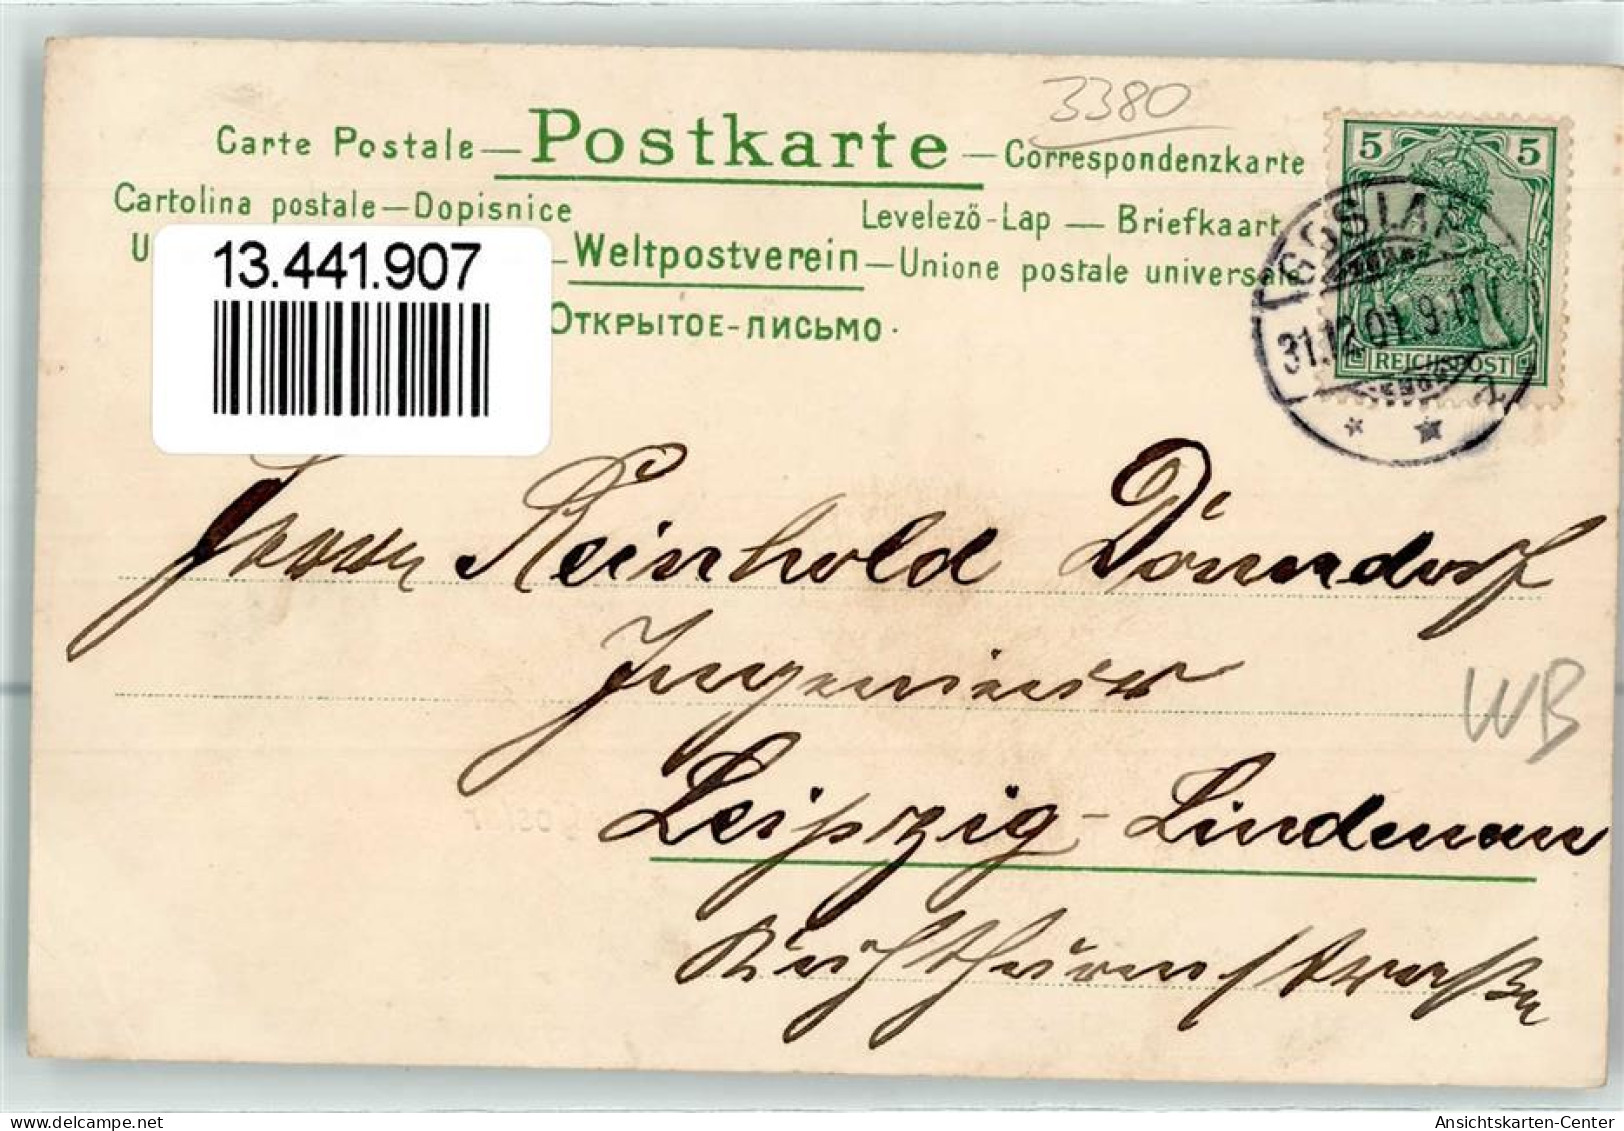 3380
Carte Postale — Postkarte — Correspondenzkarte
Cartolina postale — Dopisnice
Levelező-Lap — Briefkaart
U
— Weltpostverein — Unione postale universale
Открытое-письмо.
13.441.907
5 5
REICHSPOST
GOSLAR
31.12.01. 9-10
2
Herrn Reinhold Dönndorf
Ingenieur
WB
Leipzig-Lindenau
Ansichtskarten-Center